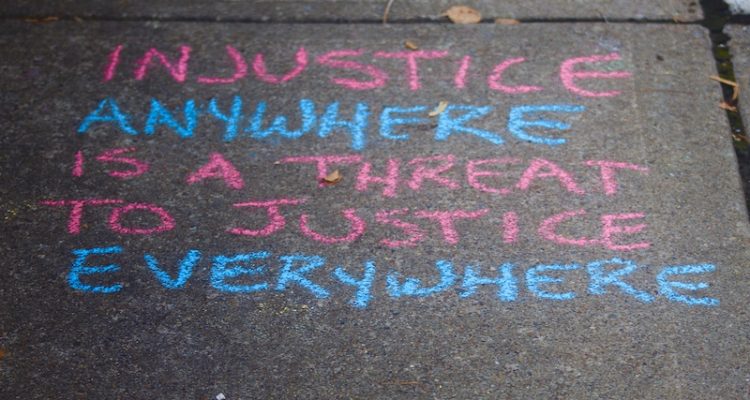 INJUSTICE
ANYWHERE
IS A THREAT
TO JUSTICE
EVERYWHERE